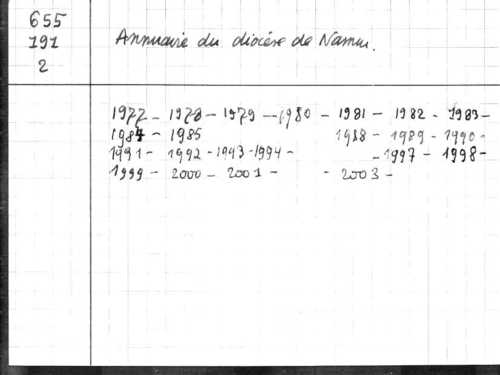 655
191
2
Annuaire du diocèse de Namur.
1977 - 1978 - 1979 - 1980 - 1981 - 1982 - 1983 -
1984 - 1985 1988 - 1989 - 1990 -
1991 - 1992 - 1993 - 1994 - - 1997 - 1998 -
1999 - 2000 - 2001 - - 2003 -